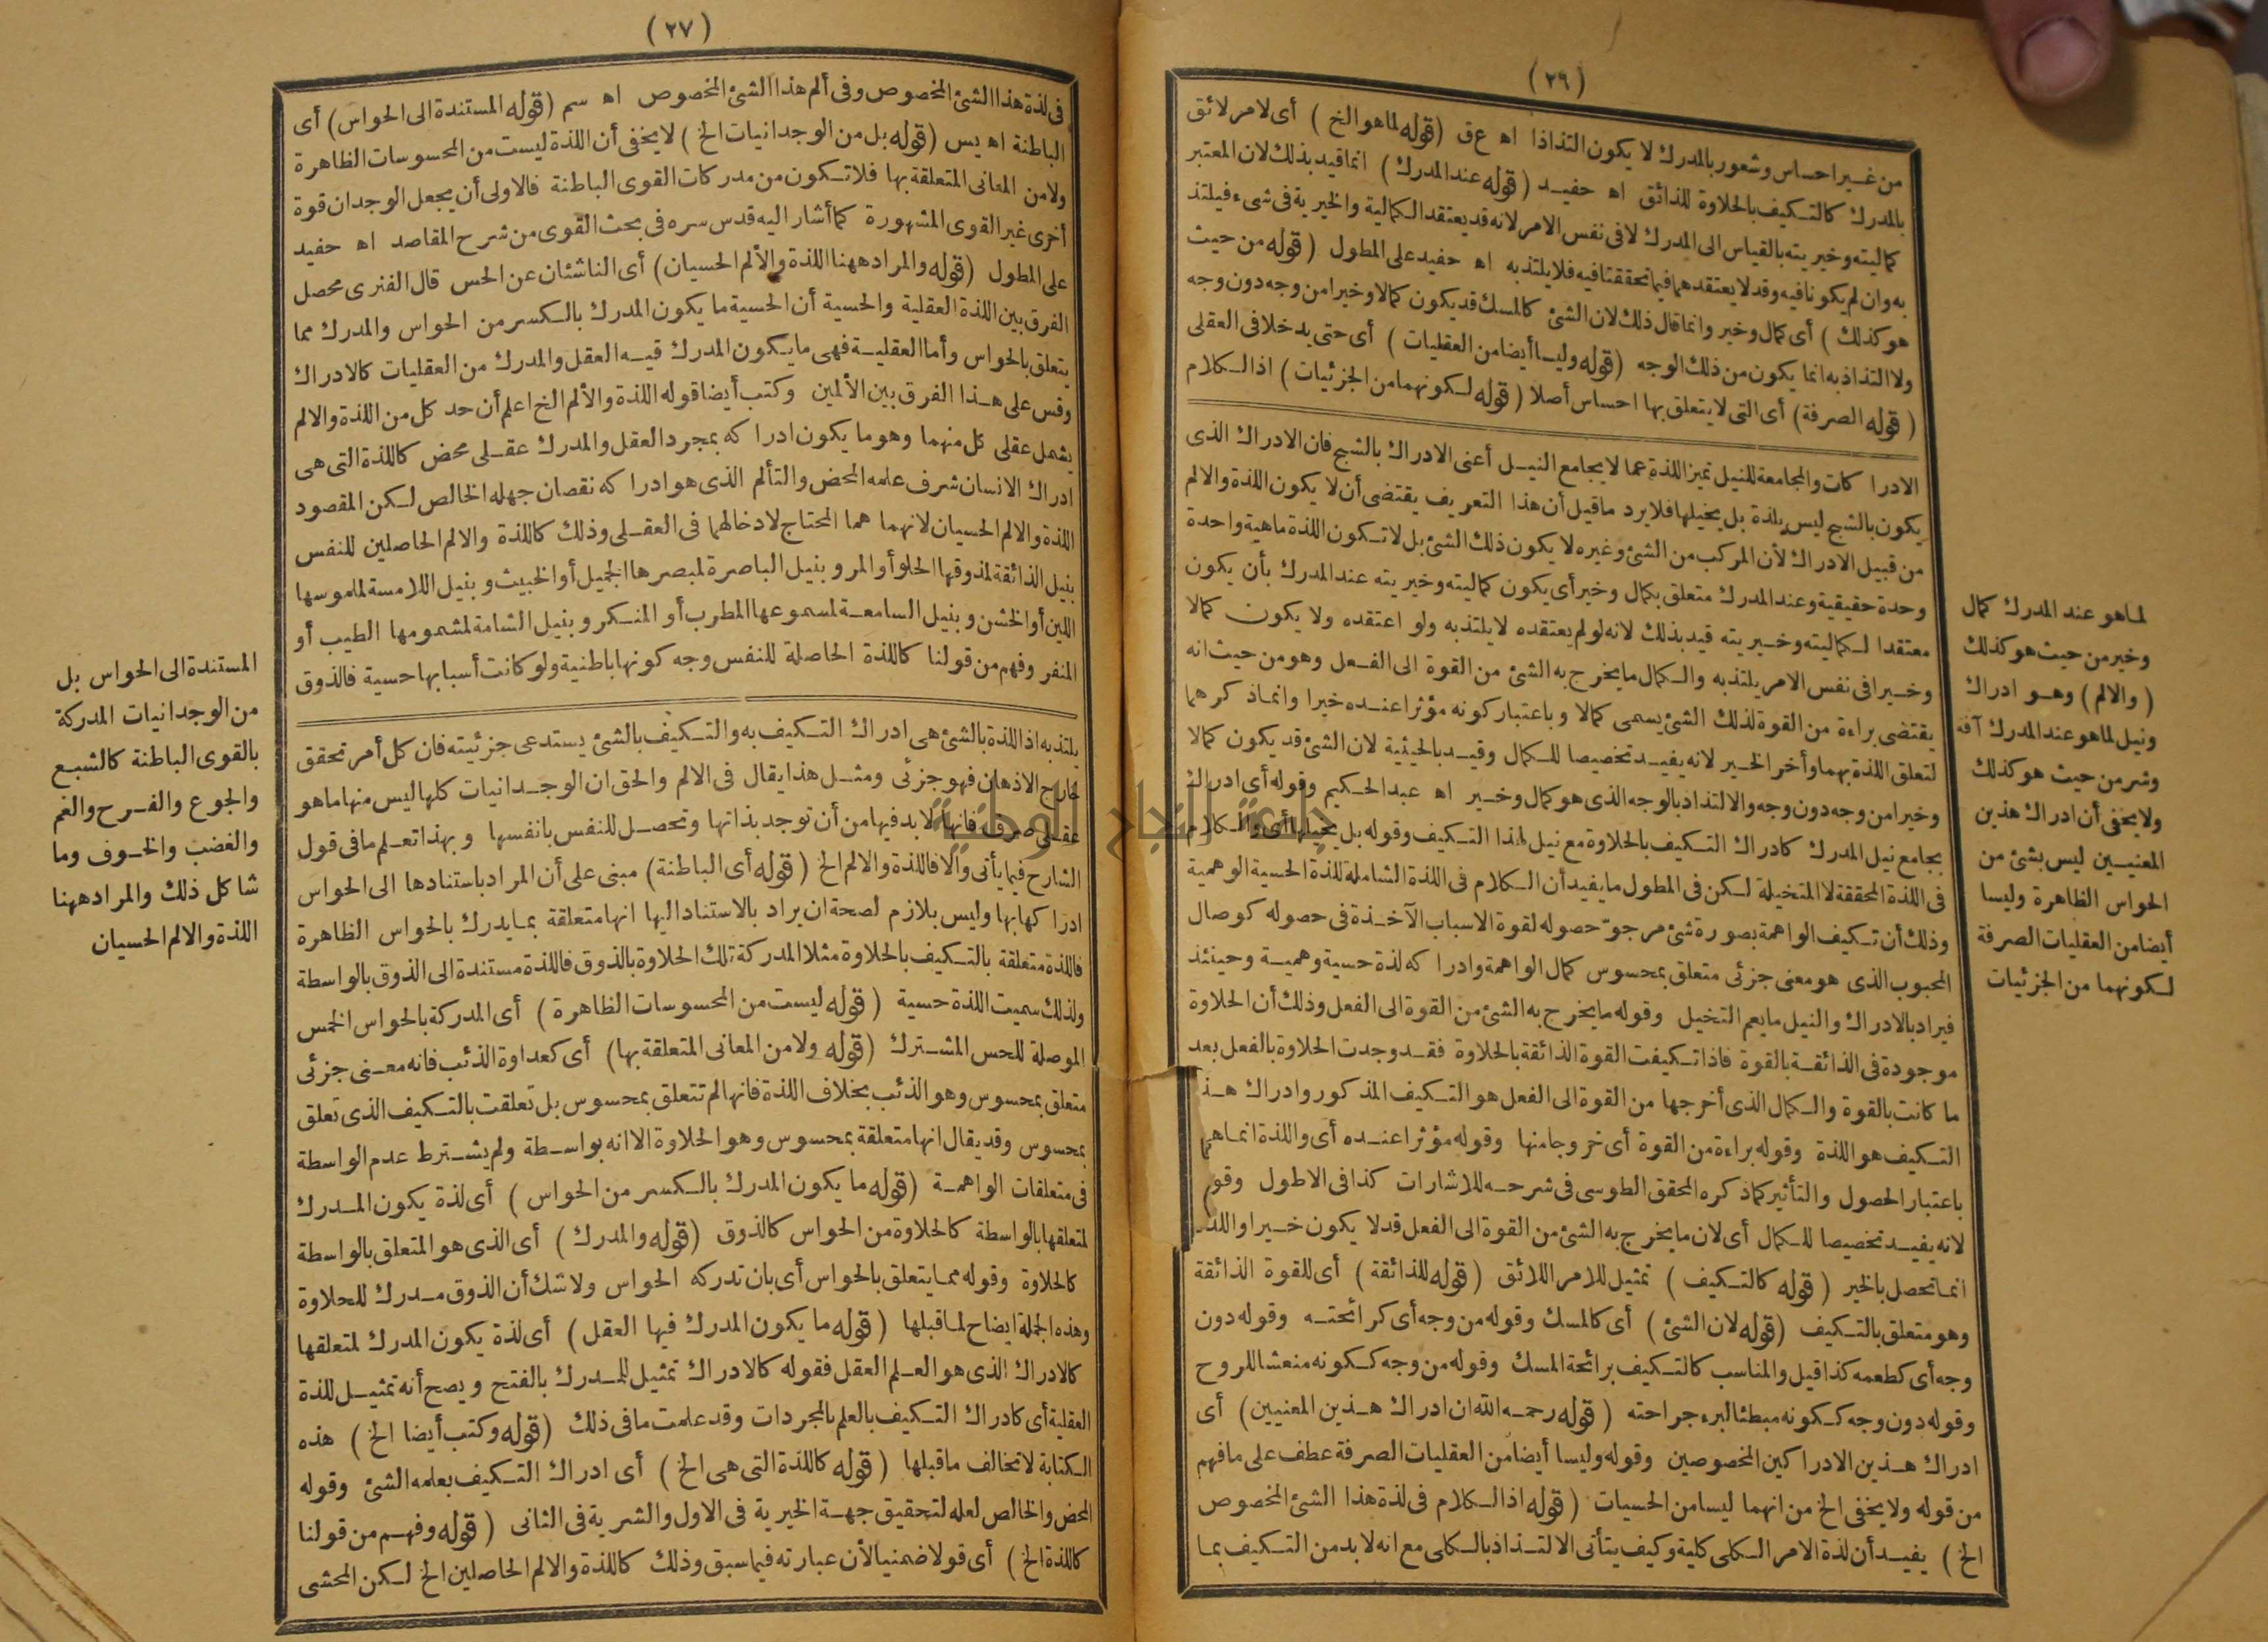 (٢٦)
من غير احساس وشعور بالمدرك لا يكون التذاذا اه ع ق (قوله لما هو الخ) أى لامر لائق
بالمدرك كالتكيف بالحلاوة للذائق اه حفيد (قوله عند المدرك) انما قيد بذلك لان المعتبر
كماليته وخيريته بالقياس الى المدرك لا فى نفس الامر لانه قد يعتقد الكمالية والخيرية فى شىء فيلتذ
به وان لم يكونا فيه وقد لا يعتقدهما فيما تحققتا فيه فلا يلتذ به اه حفيد على المطول (قوله من حيث
هو كذلك) أى كمال وخير وانما قال ذلك لان الشئ كالمسك قد يكون كمالا وخيرا من وجه دون وجه
ولا التذاذ به انما يكون من ذلك الوجه (قوله وليسا أيضا من العقليات) أى حتى يدخلا فى العقلى
(قوله الصرفة) أى التى لا يتعلق بها احساس أصلا (قوله لكونهما من الجزئيات) اذ الكلام
الادراكات والمجامعة للنيل تميز اللذة عما لا يجامع النيل أعنى الادراك بالشبح فان الادراك الذى
يكون بالشبح ليس بلذة بل يخيلها فلا يرد ما قيل أن هذا التعريف يقتضى أن لا يكون اللذة والالم
من قبيل الادراك لأن المركب من الشئ وغيره لا يكون ذلك الشئ بل لا تكون اللذة ماهية واحدة
وحدة حقيقية وعند المدرك متعلق بكمال وخير أى يكون كماليته وخيريته عند المدرك بأن يكون
معتقدا لكماليته وخيريته قيد بذلك لانه لو لم يعتقده لا يلتذ به ولو اعتقده ولا يكون كمالا
وخيرا فى نفس الامر يلتذ به والكمال ما يخرج به الشئ من القوة الى الفعل وهو من حيث انه
يقتضى براءة من القوة لذلك الشئ يسمى كمالا وباعتبار كونه مؤثرا عنده خيرا وانما ذكرهما
لتعلق اللذة بهما وأخر الخير لانه يفيد تخصيصا للكمال وقيد بالحيثية لان الشئ قد يكون كمالا
وخيرا من وجه دون وجه والالتذاذ بالوجه الذى هو كمال وخير اه عبد الحكيم وقوله أى ادراك
يجامع نيل المدرك كادراك التكيف بالحلاوة مع نيل لهذا التكيف وقوله بل يخيلها أى والكلام
فى اللذة المحققة لا المتخيلة لكن فى المطول ما يفيد أن الكلام فى اللذة الشاملة للذة الحسية الوهمية
وذلك أن تكيف الواهمة بصورة شئ مرجو حصوله لقوة الاسباب الآخذة فى حصوله كوصال
المحبوب الذى هو معنى جزئى متعلق بمحسوس كمال الواهمة وادراكه لذة حسية وهمية وحينئذ
فيراد بالادراك والنيل ما يعم التخيل وقوله ما يخرج به الشئ من القوة الى الفعل وذلك أن الحلاوة
موجودة فى الذائقة بالقوة فاذا تكيفت القوة الذائقة بالحلاوة فقد وجدت الحلاوة بالفعل بعد
ما كانت بالقوة والكمال الذى أخرجها من القوة الى الفعل هو التكيف المذكور وادراك هذا
التكيف هو اللذة وقوله براءة من القوة أى خروجا منها وقوله مؤثرا عنده أى واللذة انما هى
باعتبار الحصول والتأثير كما ذكره المحقق الطوسى فى شرحه للاشارات كذا فى الاطول وقو
لانه يفيد تخصيصا للكمال أى لان ما يخرج به الشئ من القوة الى الفعل قد لا يكون خيرا واللذ
انما تحصل بالخير (قوله كالتكيف) تمثيل للامر اللائق (قوله للذائقة) أى للقوة الذائقة
وهو متعلق بالتكيف (قوله لان الشئ) أى كالمسك وقوله من وجه أى كرائحته وقوله دون
وجه أى كطعمه كذا قيل والمناسب كالتكيف برائحة المسك وقوله من وجه ككونه منعشا للروح
وقوله دون وجه ككونه مبطئا لبرء جراحته (قوله رحمه الله ان ادراك هذين المعنيين) أى
ادراك هذين الادراكين المخصوصين وقوله وليسا أيضا من العقليات الصرفة عطف على ما فهم
من قوله ولا يخفى الخ من انهما ليسا من الحسيات (قوله اذ الكلام فى لذة هذا الشئ المخصوص
الخ) يفيد أن لذة الامر الكلى كلية وكيف يتأتى الالتذاذ بالكلى مع انه لا بد من التكيف بما
لما هو عند المدرك كمال
وخير من حيث هو كذلك
(والالم) وهو ادراك
ونيل لما هو عند المدرك آفة
وشر من حيث هو كذلك
ولا يخفى أن ادراك هذين
المعنيين ليس بشئ من
الحواس الظاهرة وليسا
أيضا من العقليات الصرفة
لكونهما من الجزئيات
(٢٧)
فى لذة هذا الشئ المخصوص وفى ألم هذا الشئ المخصوص اه سم (قوله المستندة الى الحواس) أى
الباطنة اه يس (قوله بل من الوجدانيات الخ) لا يخفى أن اللذة ليست من المحسوسات الظاهرة
ولا من المعانى المتعلقة بها فلا تكون من مدركات القوى الباطنة فالاولى أن يجعل الوجدان قوة
أخرى غير القوى المشهورة كما أشار اليه قدس سره فى بحث القوى من شرح المقاصد اه حفيد
على المطول (قوله والمراد ههنا اللذة والألم الحسيان) أى الناشئان عن الحس قال الفنرى محصل
الفرق بين اللذة العقلية والحسية أن الحسية ما يكون المدرك بالكسر من الحواس والمدرك مما
يتعلق بالحواس وأما العقلية فهى ما يكون المدرك فيه العقل والمدرك من العقليات كالادراك
وقس على هذا الفرق بين الألمين وكتب أيضا قوله اللذة والألم الخ اعلم أن حد كل من اللذة والالم
يشمل عقلى كل منهما وهو ما يكون ادراكه بمجرد العقل والمدرك عقلى محض كاللذة التى هى
ادراك الانسان شرف علمه المحض والتألم الذى هو ادراكه نقصان جهله الخالص لكن المقصود
اللذة والالم الحسيان لانهما هما المحتاج لادخالهما فى العقلى وذلك كاللذة والالم الحاصلين للنفس
بنيل الذائقة لمذوقها الحلو أو المر وبنيل الباصرة لمبصرها الجميل أو الخبيث وبنيل اللامسة لملموسها
اللين أو الخشن وبنيل السامعة لمسموعها المطرب أو المنكر وبنيل الشامة لمشمومها الطيب أو
المنفر وفهم من قولنا كاللذة الحاصلة للنفس وجه كونها باطنية ولو كانت أسبابها حسية فالذوق
يلتذ به اذ اللذة بالشئ هى ادراك التكيف به والتكيف بالشئ يستدعى جزئيته فان كل أمر تحقق
خارج الاذهان فهو جزئى ومثل هذا يقال فى الالم والحق ان الوجدانيات كلها ليس منها ما هو
عقلى صرف فانها لا بد فيها من أن توجد بذاتها وتحصل للنفس بانفسها وبهذا تعلم ما فى قول
الشارح فيما يأتى والا فاللذة والالم الخ (قوله أى الباطنة) مبنى على أن المراد باستنادها الى الحواس
ادراكها بها وليس بلازم لصحة ان يراد بالاستناد اليها انها متعلقة بما يدرك بالحواس الظاهرة
فاللذة متعلقة بالتكيف بالحلاوة مثلا المدركة تلك الحلاوة بالذوق فاللذة مستندة الى الذوق بالواسطة
ولذلك سميت اللذة حسية (قوله ليست من المحسوسات الظاهرة) أى المدركة بالحواس الخمس
الموصلة للحس المشترك (قوله ولا من المعانى المتعلقة بها) أى كعداوة الذئب فانه معنى جزئى
متعلق بمحسوس وهو الذئب بخلاف اللذة فانها لم تتعلق بمحسوس بل تعلقت بالتكيف الذى تعلق
بمحسوس وقد يقال انها متعلقة بمحسوس وهو الحلاوة الا انه بواسطة ولم يشترط عدم الواسطة
فى متعلقات الواهمة (قوله ما يكون المدرك بالكسر من الحواس) أى لذة يكون المدرك
لمتعلقها بالواسطة كالحلاوة من الحواس كالذوق (قوله والمدرك) أى الذى هو المتعلق بالواسطة
كالحلاوة وقوله مما يتعلق بالحواس أى بان تدركه الحواس ولا شك أن الذوق مدرك للحلاوة
وهذه الجملة ايضاح لما قبلها (قوله ما يكون المدرك فيها العقل) أى لذة يكون المدرك لمتعلقها
كالادراك الذى هو العلم العقل فقوله كالادراك تمثيل للمدرك بالفتح ويصح أنه تمثيل للذة
العقلية أى كادراك التكيف بالعلم بالمجردات وقد علمت ما فى ذلك (قوله وكتب أيضا الخ) هذه
الكتابة لا تخالف ما قبلها (قوله كاللذة التى هى الخ) أى ادراك التكيف بعلمه الشئ وقوله
المحض والخالص لعله لتحقيق جهة الخيرية فى الاول والشرية فى الثانى (قوله وفهم من قولنا
كاللذة الخ) أى قولا ضمنيا لأن عبارته فيما سبق وذلك كاللذة والالم الحاصلين الخ لكن المحشى
المستندة الى الحواس بل
من الوجدانيات المدركة
بالقوى الباطنة كالشبع
والجوع والفرح والغم
والغضب والخوف وما
شاكل ذلك والمراد ههنا
اللذة والالم الحسيان
جامعة النجاح الوطنية